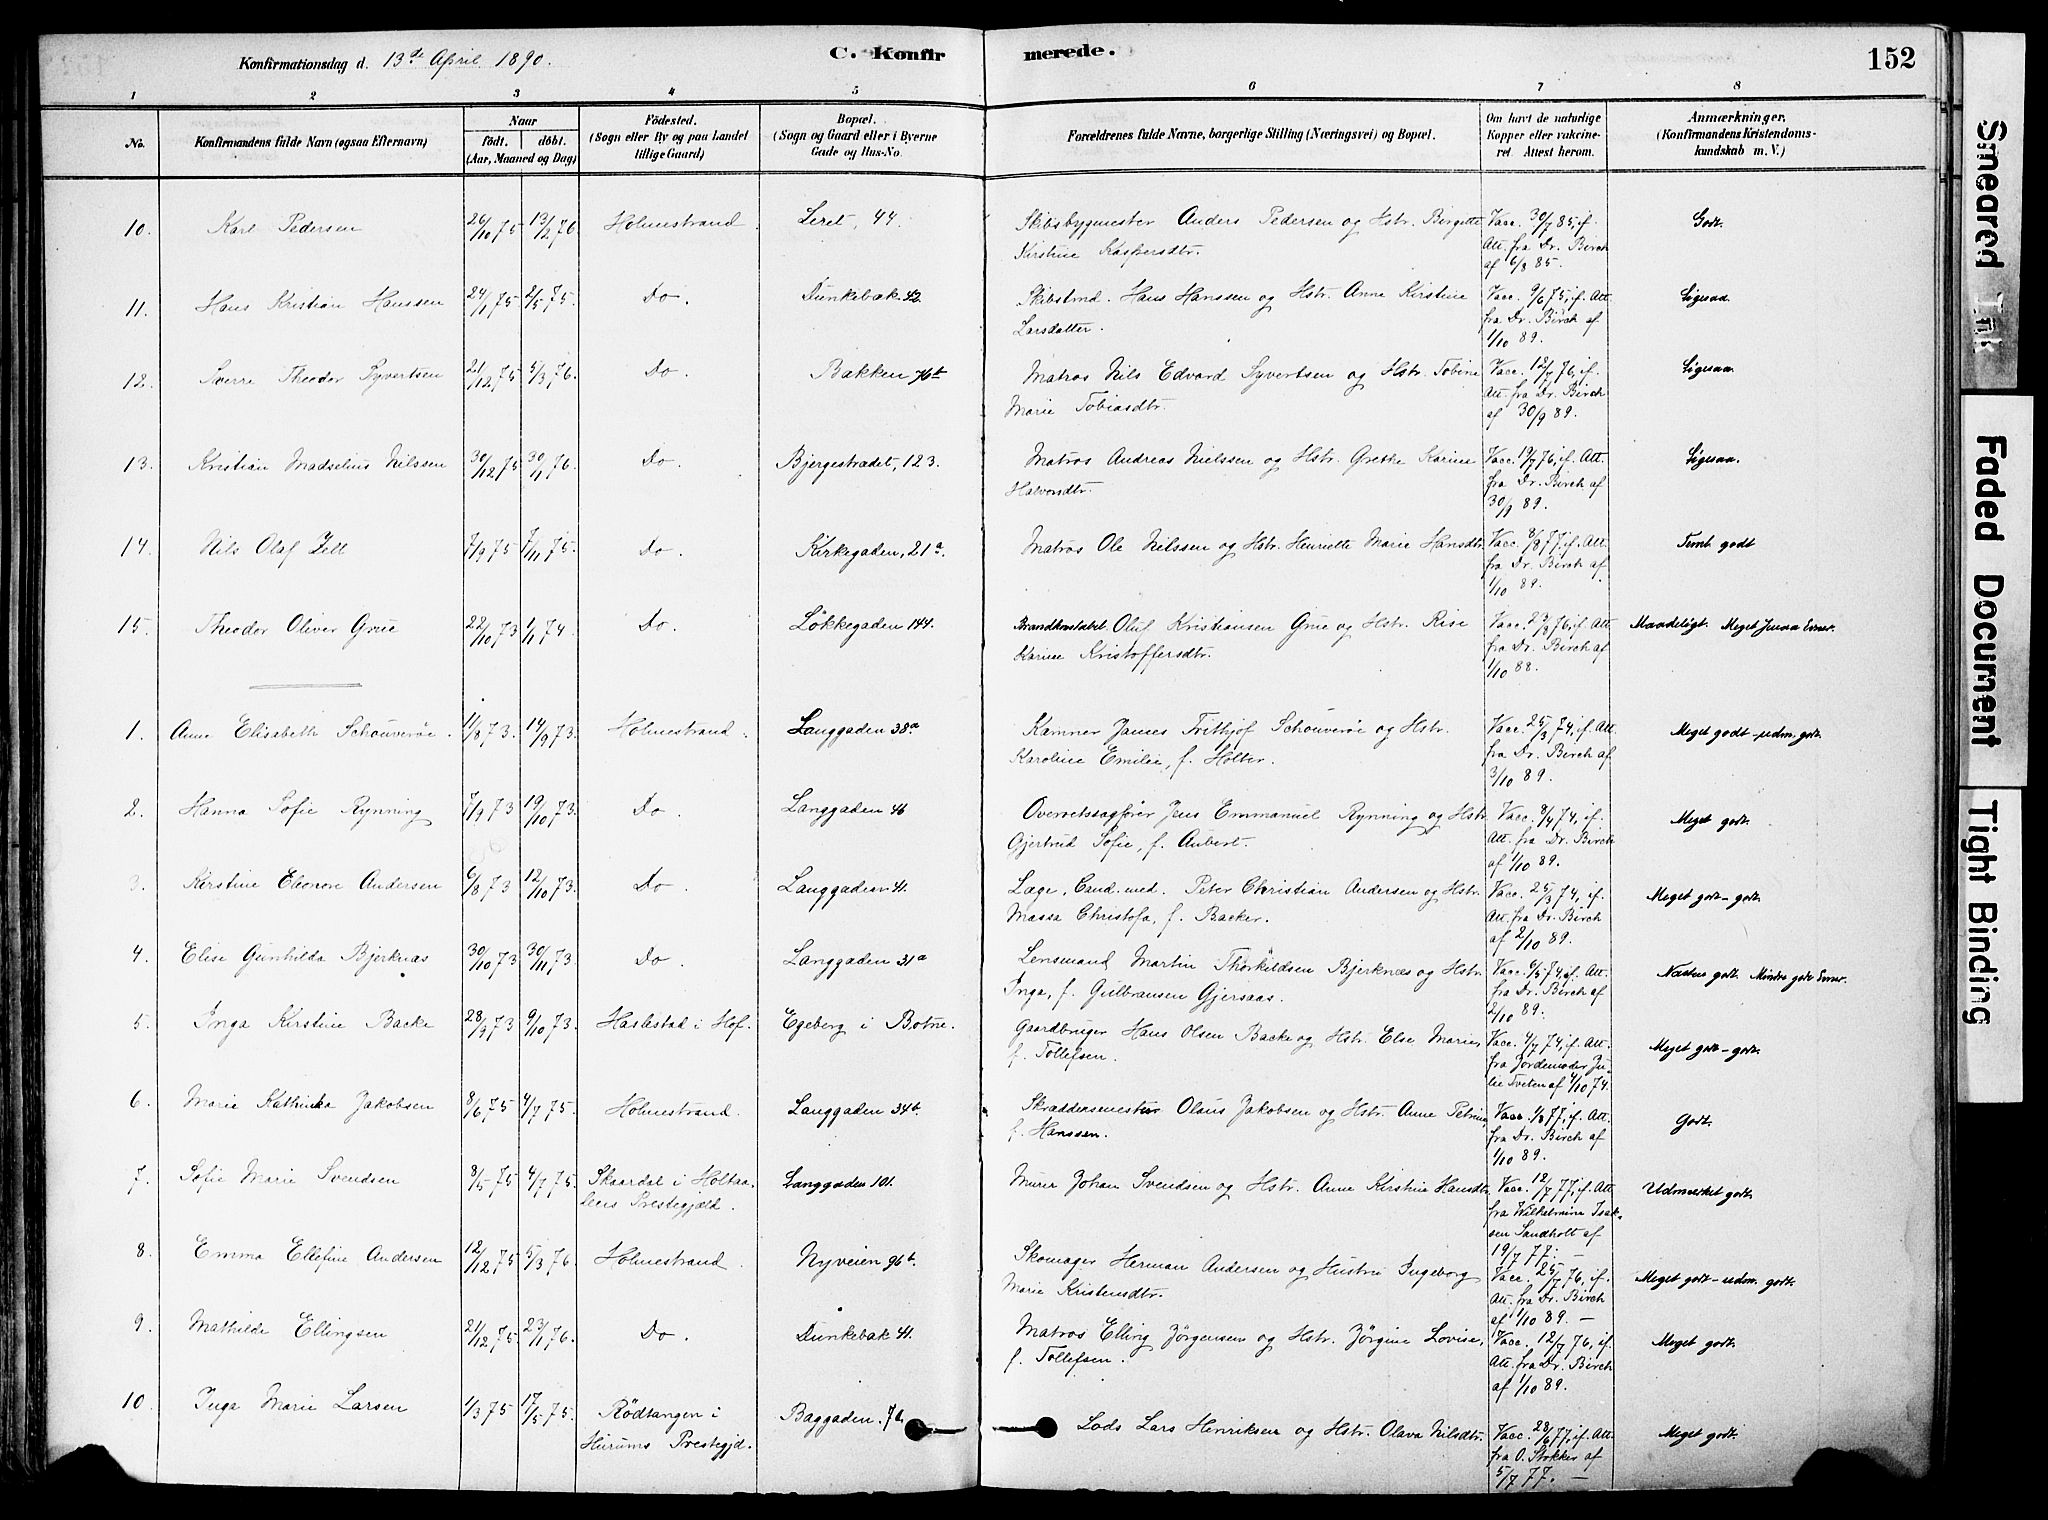 Konfirmationsdag d. 13de April 1890.
C. Konfirmerede.
152
1 2 3 4 5 6 7 8
No.
Konfirmandens fulde Navn (ogsaa Efternavn)
Naar
födt. döbt.
(Aar, Maaned og Dag)
Födested.
(Sogn eller By og paa Landet
tillige Gaard)
Bopæl.
(Sogn og Gaard eller i Byerne
Gade og Hus-No.
Forældrenes fulde Navne, borgerlige Stilling (Næringsvei) og Bopæl.
Om havt de naturlige
Kopper eller vakcine-
ret. Attest herom.
Anmærkninger.
(Konfirmandens Kristendoms-
kundskab m. V.)
10. Karl Pedersen 26/10 75 13/2 76 Holmestrand. Leret, 44. Skibsbygmester Anders Pedersen og Hstr. Birgitte
Kirstine Kaspersdtr.
Vacc. 30/7 85, if.
Att. fra Dr. Birch
af 6/8 85.
Godt.
11. Hans Kristian Hanssen 24/1 75 2/5 75. Do. Dunkebæk. 42 Skibstmd. Hans Hanssen og Hstr. Anne Kirstine
Larsdatter.
Vacc. 9/6 75, if. Att.
fra Dr. Birch af
1/10 89.
Ligesaa.
12. Sverre Theodor Syvertsen 21/12 75 5/3 76. Do. Bakken 76b Matros Nils Edvard Syvertsen og Hstr. Tobine
Marie Tobiasdtr.
Vacc. 12/7 76, if.
Att. fra Dr. Birch
af 30/9 89.
Ligesaa.
13. Kristian Madselius Nilssen 30/12 75 30/1 76. Do. Bjergestrædet, 123. Matros Andreas Nielssen og Hstr. Grethe Karine
Halvorsdtr.
Vacc. 19/7 76, if. Att.
fra Dr. Birch af
30/9 89.
Ligesaa.
14. Nils Olaf Zell 7/9 75 7/11 75. Do. Kirkegaden, 21a. Matros Ole Nilssen og Hstr. Henriette Marie Hansdtr.
Vacc. 8/8 77, if. Att.
fra Dr. Birch af
1/10 89.
Teml. godt
15. Theodor Oliver Grue 22/10 73 1/1 74. Do. Lökkegaden 144. Brandkonstabel Oluf Kristiansen Grue og Hstr. Rise
Karine Kristoffersdtr.
Vacc. 23/3 76, if. Att
fra Dr. Birch af
1/10 88.
Maadeligt. Meget Evner.
1. Anne Elisabeth Schouverøe. 11/8 73. 14/9 73. Holmestrand. Langgaden 38a Kæmner James Frithjof Schouverøe og Hstr.
Karoline Emilie, f. Holter.
Vacc. 25/3 74, if. Att.
fra Dr. Birch af
3/10 89.
Meget godt - udm. godt.
2. Hanna Sofie Rynning 7/9 73 19/10 73. Do. Langgaden 46 Overretssagfører Jens Emmanuel Rynning og Hstr
Gjertrud Sofie, f. Aubert.
Vacc. 8/4 74, if.
Att. fra Dr. Birch
af 1/10 89.
Meget godt.
3. Kirstine Eleonore Andersen 6/8 73 12/10 73. Do. Langgaden 41. Læge, Cand. med. Peter Christian Andersen og Hstr.
Massa Christofa, f. Backer.
Vacc. 25/3 74, if.
Att. fra Dr. Birch
af 2/10 89.
Meget godt - godt.
4. Elise Gunhilda Bjerknæs 30/10 73 30/11 73. Do. Langgaden 31a Lensmand Martin Thorkildsen Bjerknæs og Hstr.
Inga, f. Gulbransen Gjersaas.
Vacc. 6/5 74, if. Att.
fra Dr. Birch af
2/10 89.
Næsten godt. Mindre gode Evner.
5. Inga Kirstine Backe 28/9 73 9/10 73. Haslestad i Hof. Egeberg i Botne. Gaardbruger Hans Olsen Backe og Hstr. Else Marie,
f. Tollefsen.
Vacc. 4/7 74, if. Att.
fra Jordemoder Ju-
lie Tveten af 4/10 74.
Meget godt - godt.
6. Marie Kathinka Jakobsen 8/6 75 4/7 75. Holmestrand. Langgaden 34b. Skræddersmester Olaus Jakobsen og Hstr. Anne Petrine
f. Hanssen.
Vacc. 1/8 77, if. Att.
fra Dr. Birch af
1/10 89.
Godt.
7. Sofie Marie Svendsen 8/5 75 4/7 75. Skaardal i Holtaa-
lens Prestegjæld. Langgaden 101. Murer Johan Svendsen og Hstr. Anne Kirstine Hansdtr.
Vacc. 12/7 77, if. Att
fra Wilhelmine Isak-
sen Sandholt af
19/7 77. —
Udmærket godt.
8. Emma Ellefine Andersen 12/12 75 5/3 76. Holmestrand. Nyveien 96b. Skomager Herman Andersen og Hustru Ingeborg
Marie Kristensdtr.
Vacc. 25/7 76, if.
Att. fra Dr. Birch
af 1/10 89. —
Meget godt - udm. godt.
9. Mathilde Ellingsen 21/12 75. 23/1 76. Do. Dunkebæk 41. Matros Elling Jörgensen og Hstr. Jörgine Lovise,
f. Tollefsen.
Vacc. 12/7 76, if.
Att. fra Dr. Birch
af 1/10 89.
Meget godt.
10. Inga Marie Larsen 1/3 75 17/5 75. Rödtangen i
Hurums Prestegjd. Baggaden. Lods Lars Henriksen og Hstr. Olava Nilsdtr.
Vacc. 28/6 77, if. Att.
fra O. Stokker af
5/7 77. —
Meget godt.
Smeared Ink
Faded Document
Tight Binding